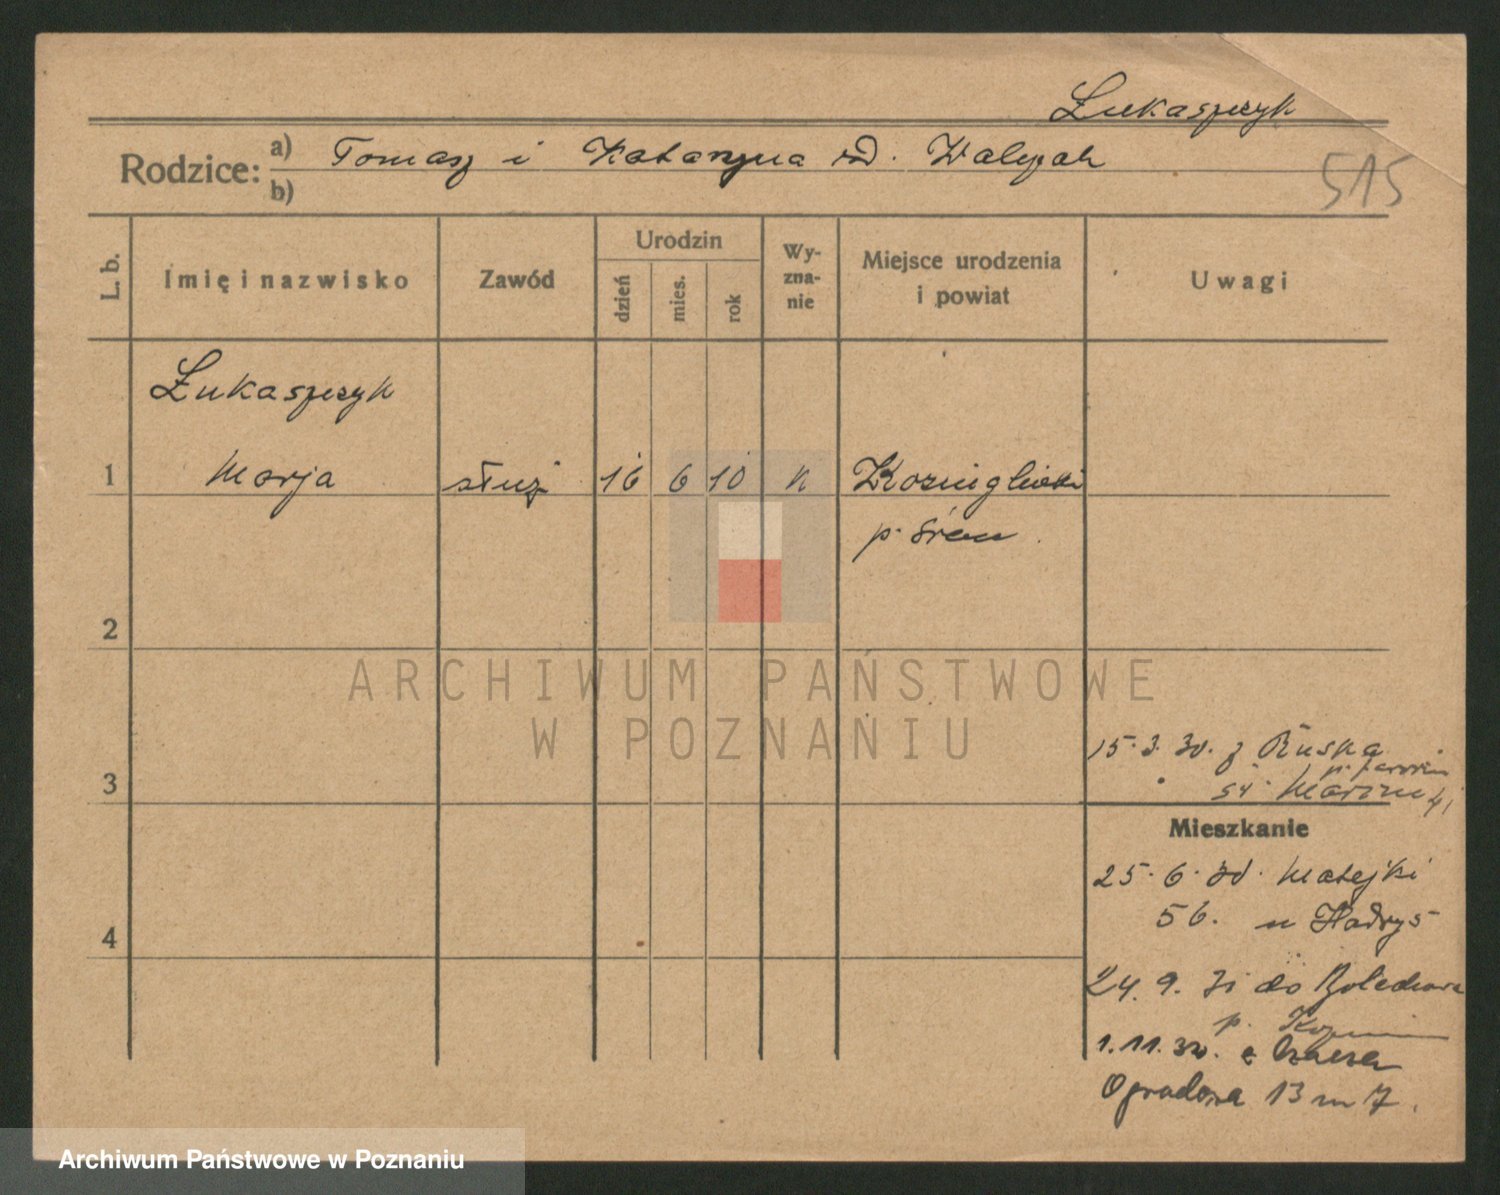 Łukaszczyk
Rodzice: a) Tomasz i Katarzyna rd. Walczak
b)
515
L. b.
Imię i nazwisko
Zawód
Urodzin
dzień
mies.
rok
Wy-
zna-
nie
Miejsce urodzenia
i powiat
Uwagi
Łukaszczyk
1 Marja służ 16 6 10 k
p. Śrem
2
ARCHIWUM PAŃSTWOWE
W POZNANIU
15.3.30. z Ruska
p. Jarocin
3
54
Mieszkanie
25.6.30. Matejki
56. u Hadryś
4
24.9.31 do
p.
1.11.32. z
Ogrodowa 13 m 7.
Archiwum Państwowe w Poznaniu